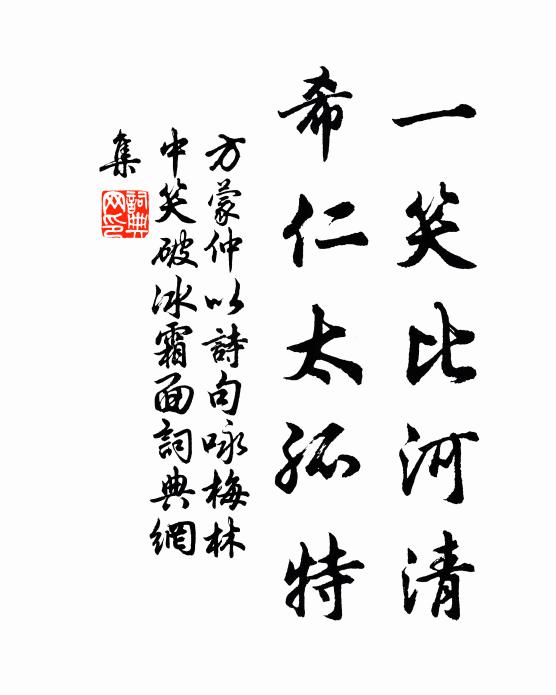 一笑比河清
希仁太孤特
方蒙仲以詩句咏梅林
中笑破冰霜面詞典網
集
詞典網印